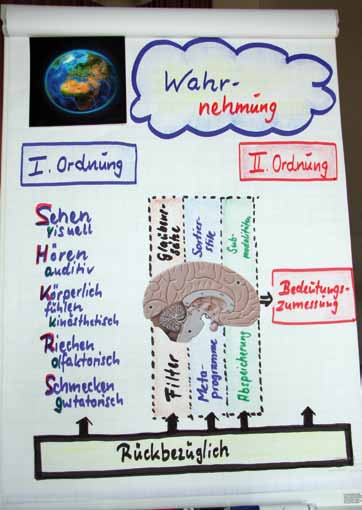 Wahr-
nehmung
I. Ordnung
II. Ordnung
Sehen
visuell
Hören
auditiv
Körperlich
fühlen
kinästhetisch
Riechen
olfaktorisch
Schmecken
gustatorisch
Glaubens-
sätze
Filter
Sortier-
stile
Meta-
programme
Sub-
modalitäten
Abspeicherung
Bedeutungs-
zumessung
Rückbezüglich